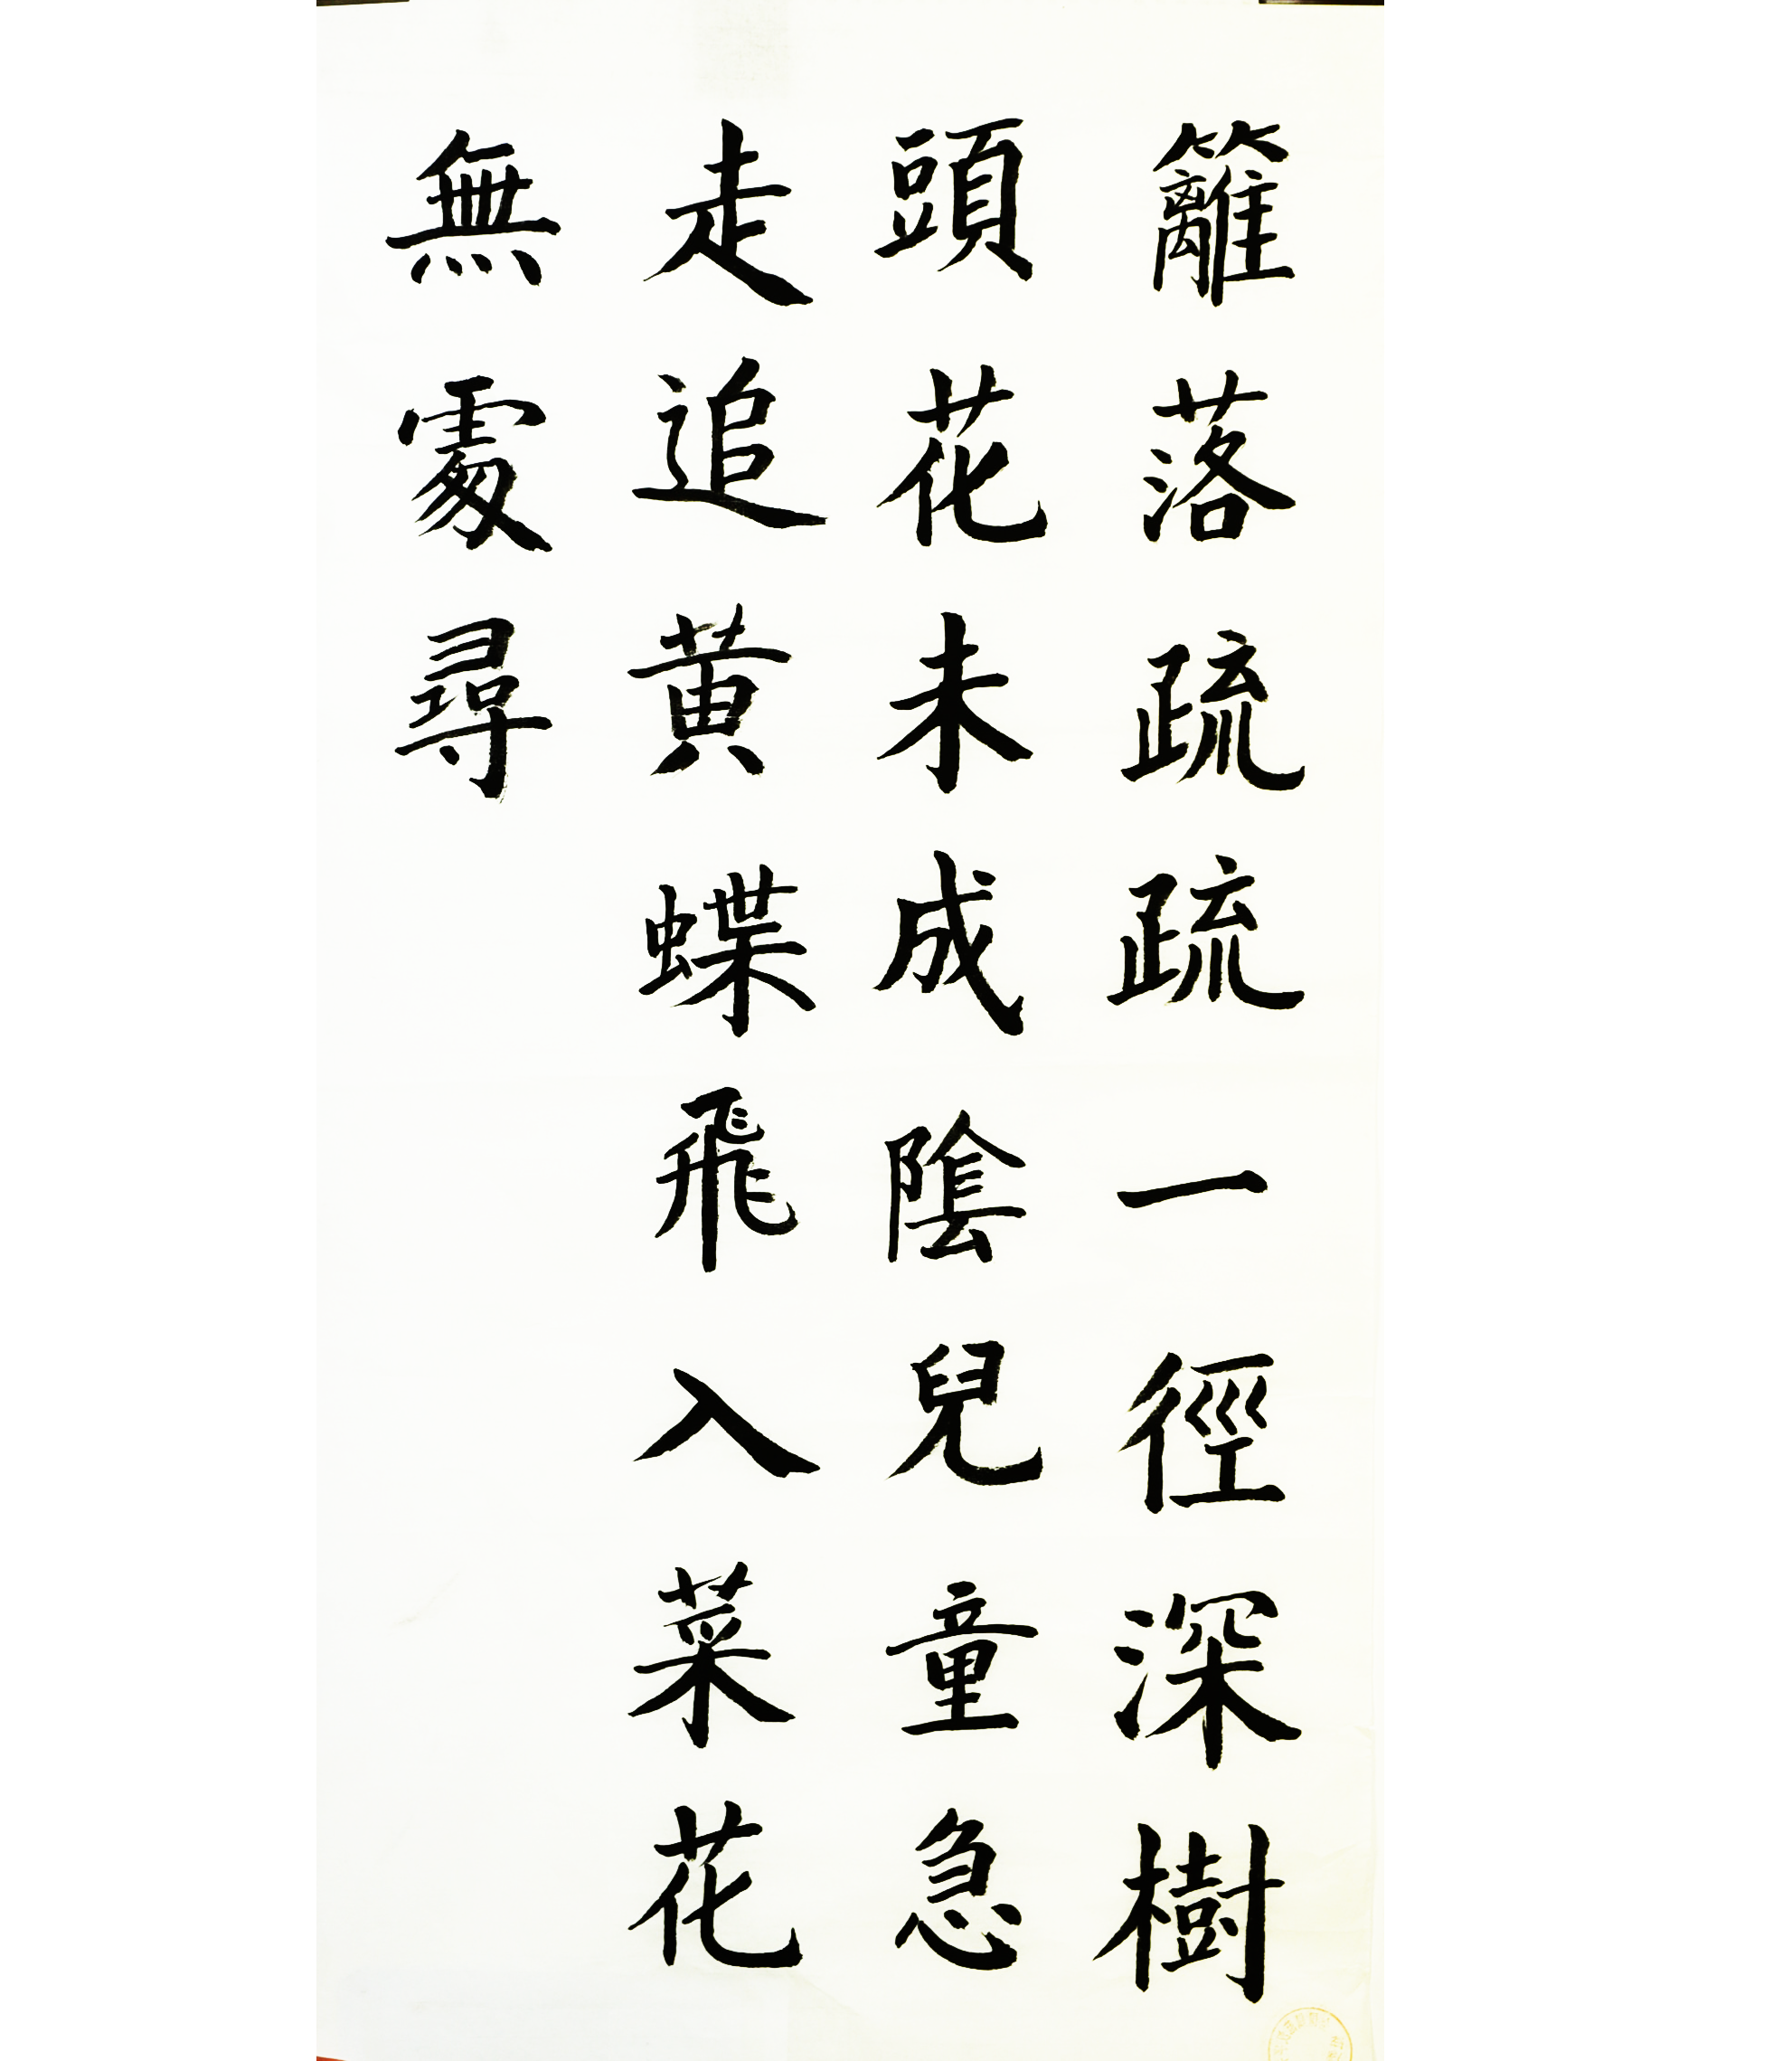 籬落疏疏一徑深樹
頭花未成陰兒童急
走追黄蝶飛入菜花
無處尋